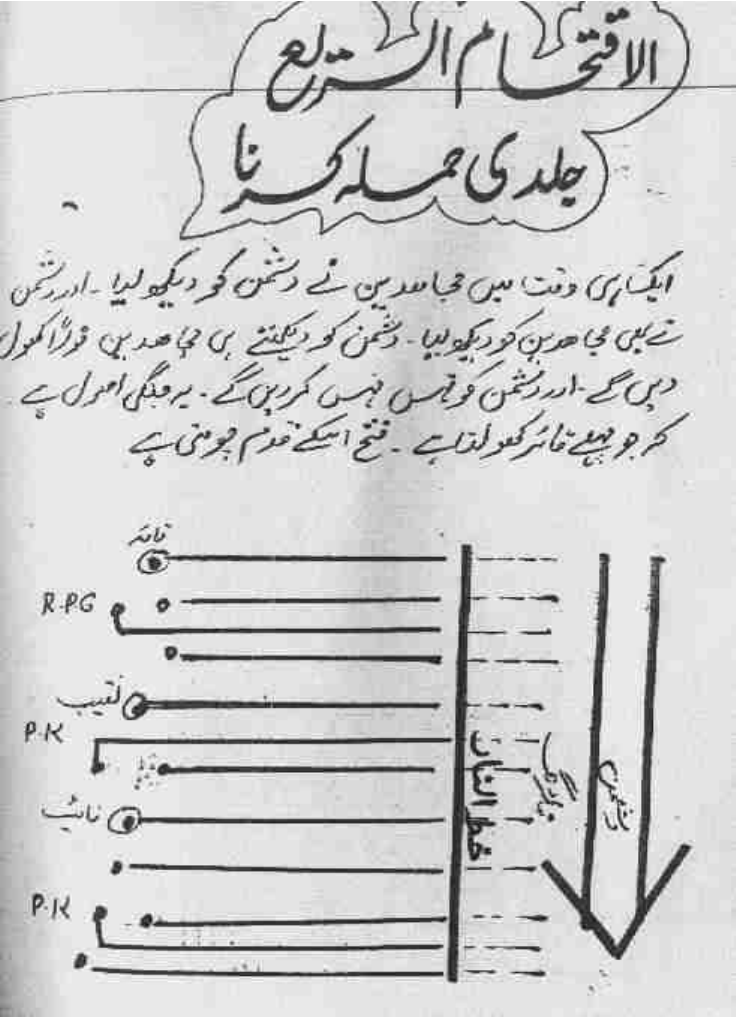 الاقتحام السريع
جلدی حملہ کرنا
ایک ہی وقت میں مجاھدین نے دشمن کو دیکھ لیا ۔ اور دشمن
نے بھی مجاھدین کو دیکھ لیا ۔ دشمن کو دیکھتے ہی مجاھدین فوراً کھول
دیں گے ۔ اور دشمن کو تہس نہس کر دیں گے ۔ یہ جنگی اصول ہے
کہ جو پہلے فائر کھولتا ہے ۔ فتح اسکے قدم چومتی ہے
قائد
R.PG
نقیب
P.K
نائب
P.K
خط النار
فائرنگ
دشمن